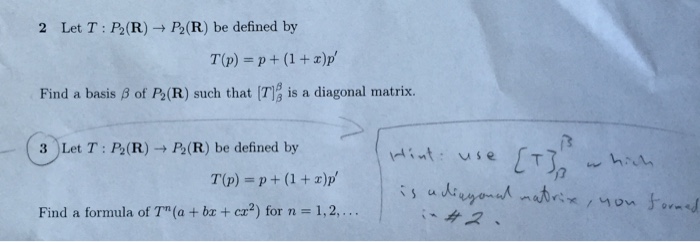 2 Let T : P₂(R) → P₂(R) be defined by
T(p) = p + (1 + x)p′
Find a basis β of P₂(R) such that [T]ᵝᵦ is a diagonal matrix.
3 Let T : P₂(R) → P₂(R) be defined by
T(p) = p + (1 + x)p′
Find a formula of Tⁿ(a + bx + cx²) for n = 1, 2, . . .
Hint: use [T]ᵝᵦ which
is a diagonal matrix, you formed
in #2.